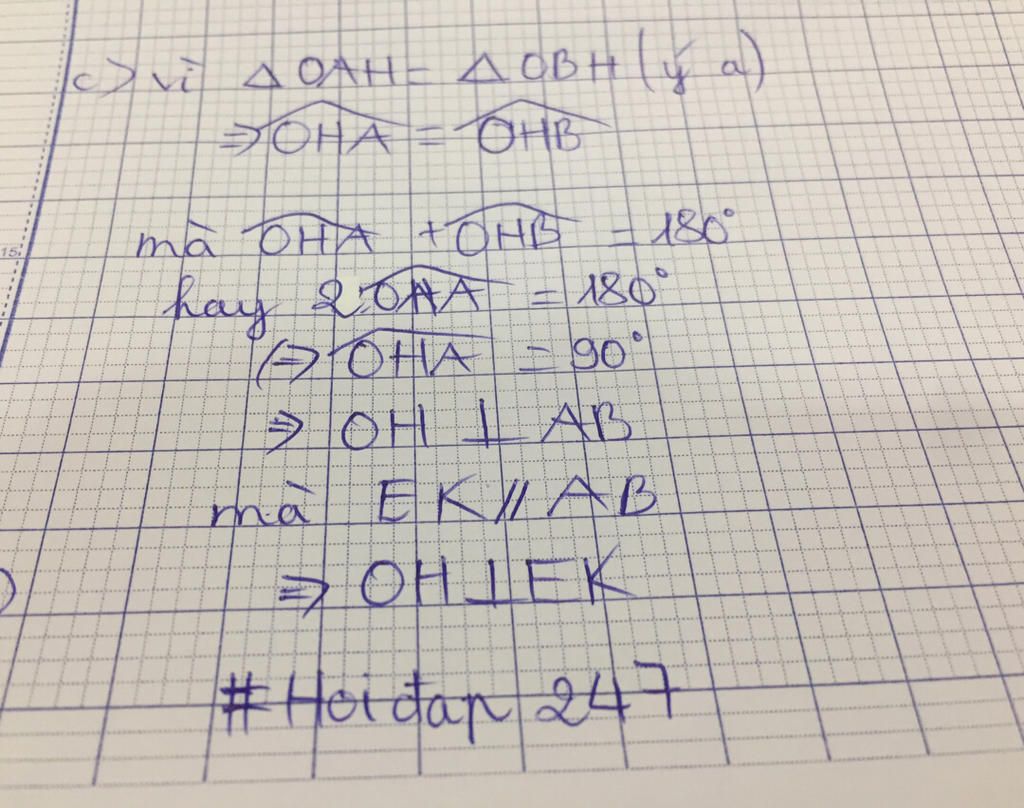 c) vì △OAH = △OBH (ý a)
⇒ \widehat{OHA} = \widehat{OHB}
mà \widehat{OHA} + \widehat{OHB} = 180°
hay 2\widehat{OHA} = 180°
(⇒) \widehat{OHA} = 90°
⇒ OH ⊥ AB
mà EK // AB
⇒ OH ⊥ EK
# Hoidap 247
15